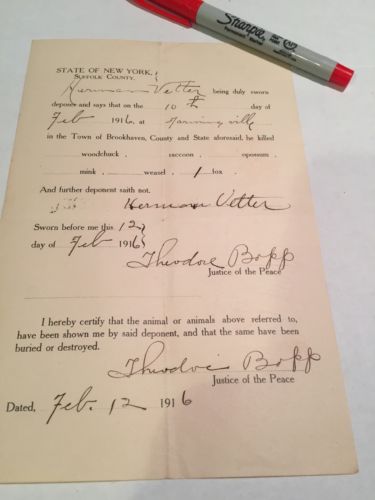 Sharpie
Permanent Marker
STATE OF NEW YORK,
SUFFOLK COUNTY,
Herman Vetter being duly sworn
deposes and says that on the 10th day of
Feb 1916, at Farmingville
in the Town of Brookhaven, County and State aforesaid, he killed
woodchuck, raccoon, opossum,
mink, weasel, 1 fox,
And further deponent saith not.
Herman Vetter
Sworn before me this 12
day of Feb 1916
Theodore Bopp
Justice of the Peace
I hereby certify that the animal or animals above referred to,
have been shown me by said deponent, and that the same have been
buried or destroyed.
Theodore Bopp
Justice of the Peace
Dated, Feb. 12 1916